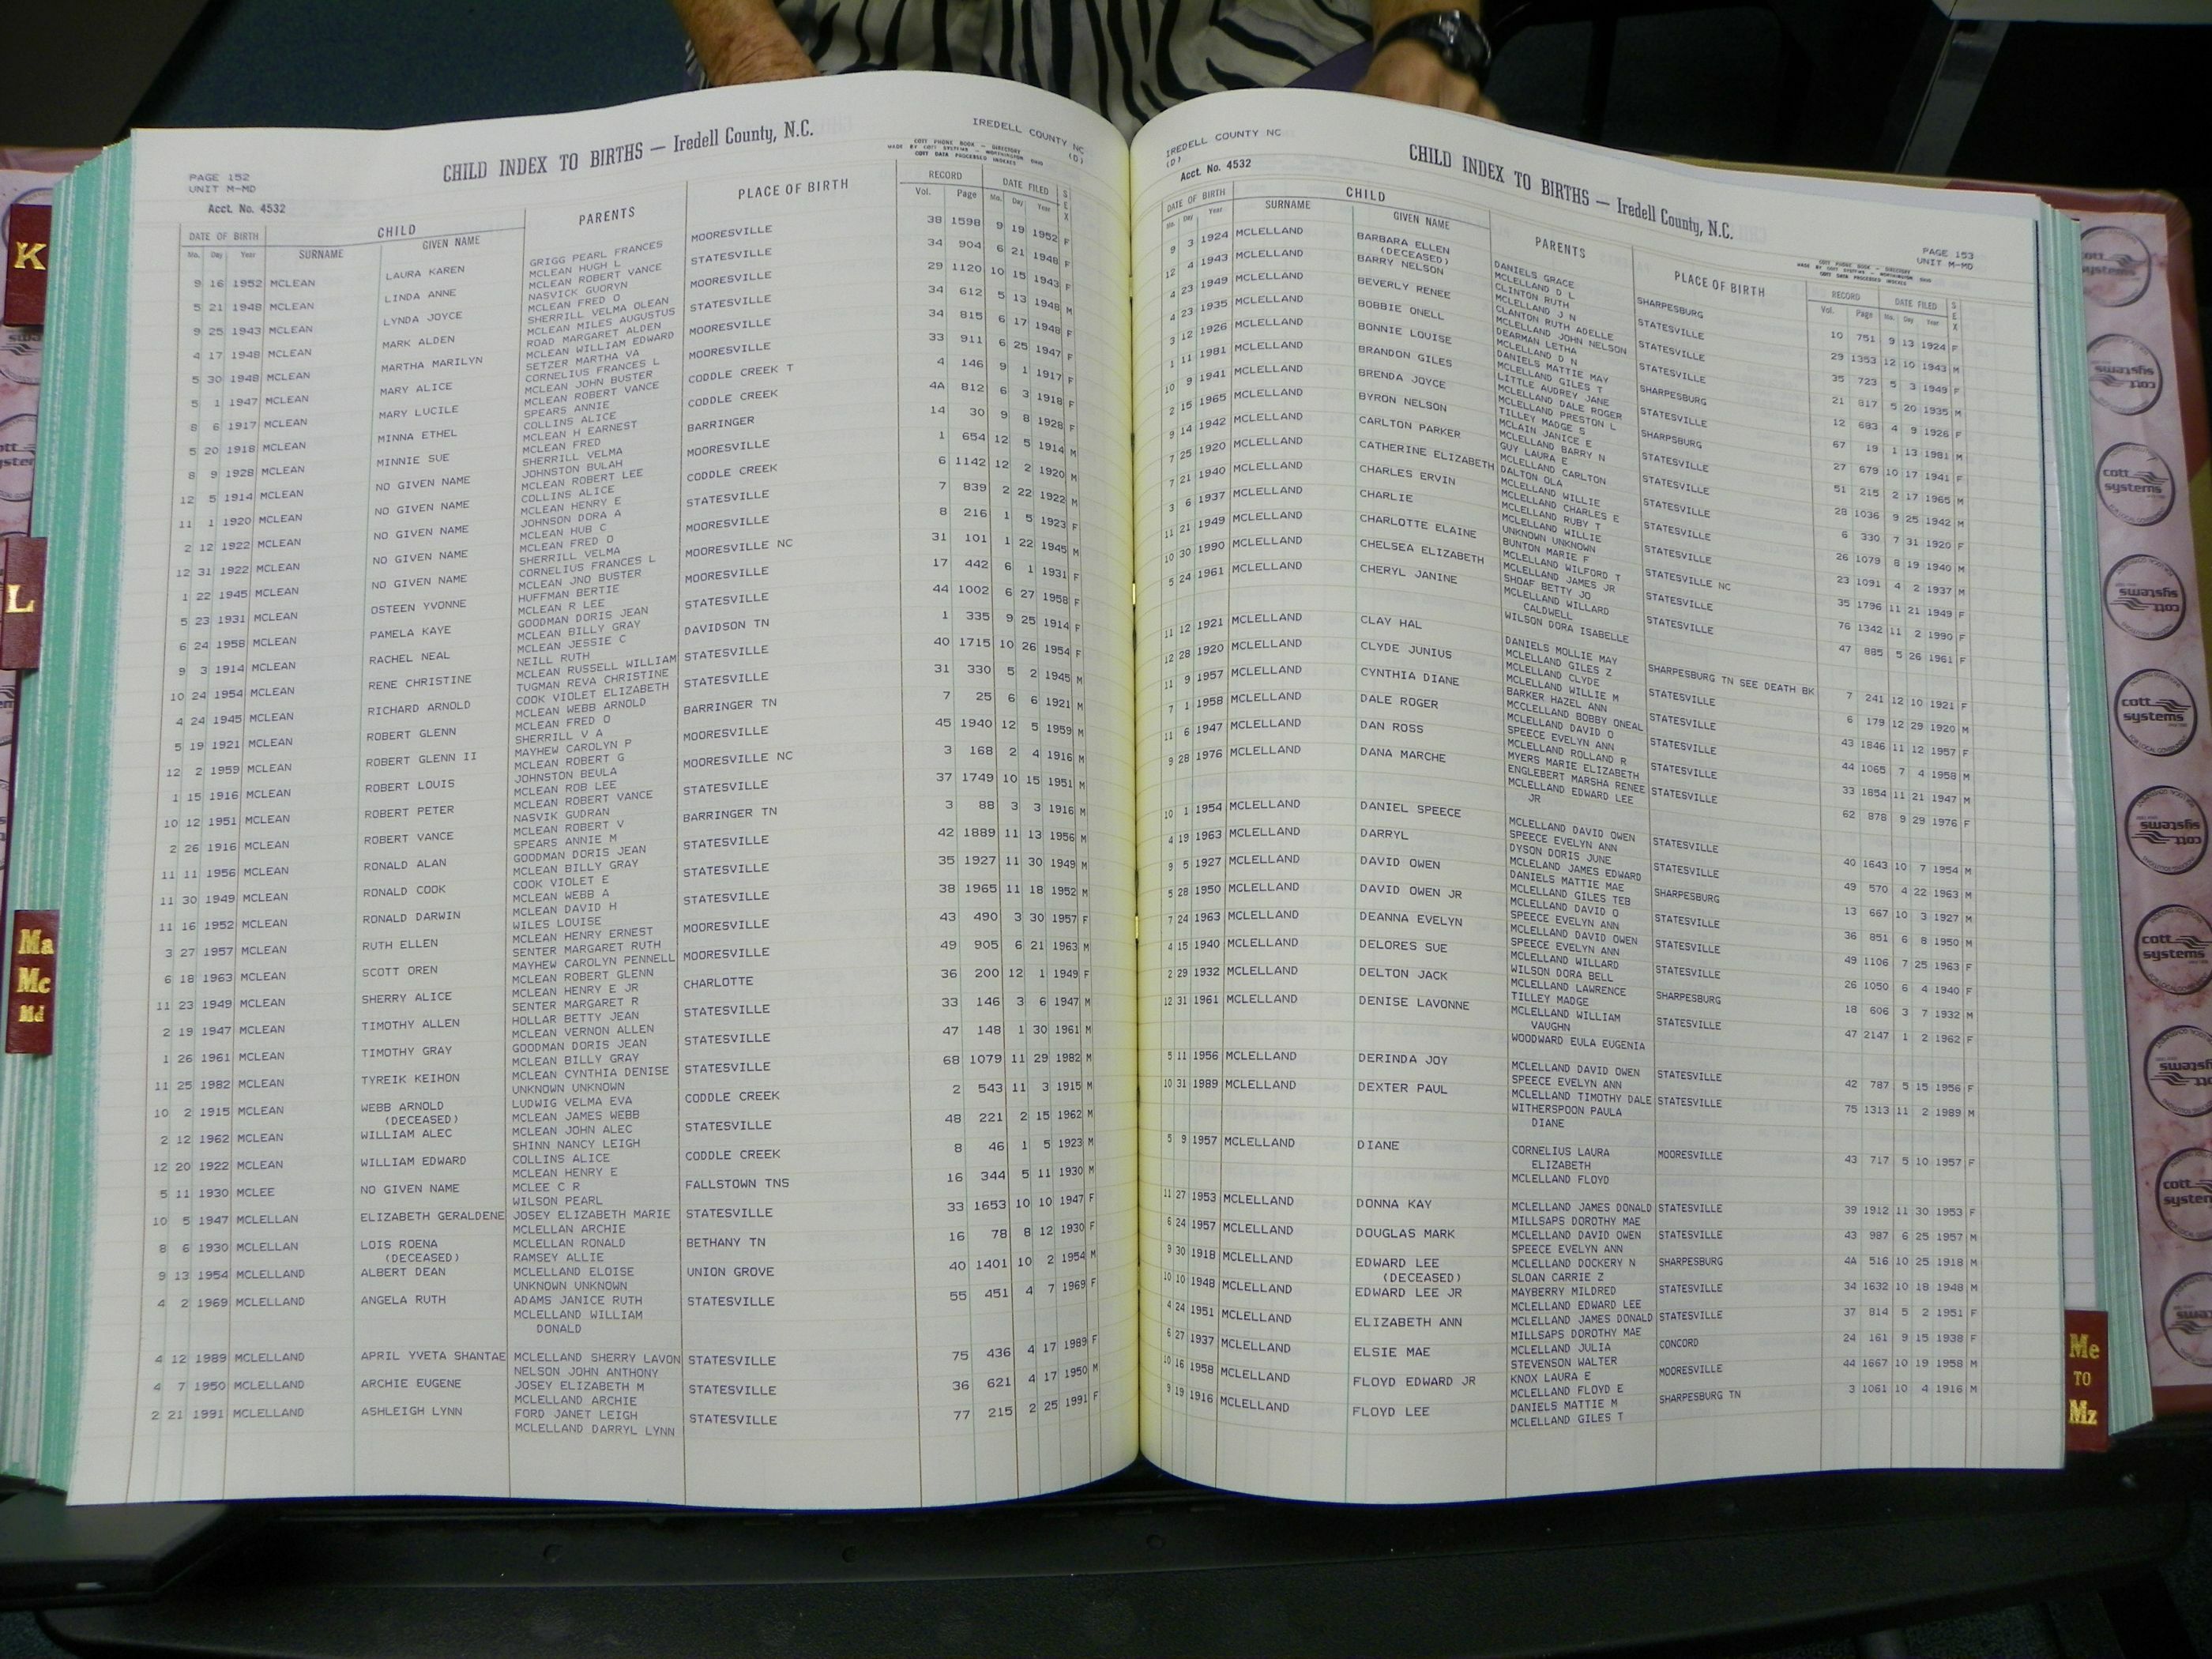 PAGE 152
UNIT M-MD
Acct. No. 4532
CHILD INDEX TO BIRTHS — Iredell County, N.C.
IREDELL COUNTY NC
(D)
COTT PHONE BOOK - DIRECTORY
MADE BY COTT SYSTEMS - WORTHINGTON OHIO
COTT DATA PROCESSED INDEXES
DATE OF BIRTH CHILD PARENTS PLACE OF BIRTH RECORD DATE FILED SEX
Mo. Day Year SURNAME GIVEN NAME Vol. Page Mo. Day Year
9 16 1952 MCLEAN LAURA KAREN GRIGG PEARL FRANCES MOORESVILLE 38 1598 9 19 1952 F
MCLEAN HUGH L
5 21 1948 MCLEAN LINDA ANNE MCLEAN ROBERT VANCE STATESVILLE 34 904 6 21 1948 F
NASVICK GUORYN
9 25 1943 MCLEAN LYNDA JOYCE MCLEAN FRED O MOORESVILLE 29 1120 10 15 1943 F
SHERRILL VELMA OLEAN
4 17 1948 MCLEAN MARK ALDEN MCLEAN MILES AUGUSTUS STATESVILLE 34 612 5 13 1948 M
ROAD MARGARET ALDEN
5 30 1948 MCLEAN MARTHA MARILYN MCLEAN WILLIAM EDWARD MOORESVILLE 34 815 6 17 1948 F
SETZER MARTHA VA
5 1 1947 MCLEAN MARY ALICE CORNELIUS FRANCES L MOORESVILLE 33 911 6 25 1947 F
MCLEAN JOHN BUSTER
8 6 1917 MCLEAN MARY LUCILE MCLEAN ROBERT VANCE CODDLE CREEK T 4 146 9 1 1917 F
SPEARS ANNIE
5 20 1918 MCLEAN MINNA ETHEL COLLINS ALICE CODDLE CREEK 4A 812 6 3 1918 F
MCLEAN H EARNEST
8 9 1928 MCLEAN MINNIE SUE MCLEAN FRED BARRINGER 14 30 9 8 1928 F
SHERRILL VELMA
12 5 1914 MCLEAN NO GIVEN NAME JOHNSTON BULAH MOORESVILLE 1 654 12 5 1914 M
MCLEAN ROBERT LEE
11 1 1920 MCLEAN NO GIVEN NAME COLLINS ALICE CODDLE CREEK 6 1142 12 2 1920 M
MCLEAN HENRY E
2 12 1922 MCLEAN NO GIVEN NAME JOHNSON DORA A STATESVILLE 7 839 2 22 1922 M
MCLEAN HUB C
12 31 1922 MCLEAN NO GIVEN NAME MCLEAN FRED O MOORESVILLE 8 216 1 5 1923 F
SHERRILL VELMA
1 22 1945 MCLEAN NO GIVEN NAME CORNELIUS FRANCES L MOORESVILLE NC 31 101 1 22 1945 M
MCLEAN JNO BUSTER
5 23 1931 MCLEAN OSTEEN YVONNE HUFFMAN BERTIE MOORESVILLE 17 442 6 1 1931 F
MCLEAN R LEE
6 24 1958 MCLEAN PAMELA KAYE GOODMAN DORIS JEAN STATESVILLE 44 1002 6 27 1958 F
MCLEAN BILLY GRAY
9 3 1914 MCLEAN RACHEL NEAL MCLEAN JESSIE C DAVIDSON TN 1 335 9 25 1914 F
NEILL RUTH
10 24 1954 MCLEAN RENE CHRISTINE MCLEAN RUSSELL WILLIAM STATESVILLE 40 1715 10 26 1954 F
TUGMAN REVA CHRISTINE
4 24 1945 MCLEAN RICHARD ARNOLD COOK VIOLET ELIZABETH STATESVILLE 31 330 5 2 1945 M
MCLEAN WEBB ARNOLD
5 19 1921 MCLEAN ROBERT GLENN MCLEAN FRED O BARRINGER TN 7 25 6 6 1921 M
SHERRILL V A
12 2 1959 MCLEAN ROBERT GLENN II MAYHEW CAROLYN P MOORESVILLE 45 1940 12 5 1959 M
MCLEAN ROBERT G
1 15 1916 MCLEAN ROBERT LOUIS JOHNSTON BEULA MOORESVILLE NC 3 168 2 4 1916 M
MCLEAN ROB LEE
10 12 1951 MCLEAN ROBERT PETER MCLEAN ROBERT VANCE STATESVILLE 37 1749 10 15 1951 M
NASVIK GUDRAN
2 26 1916 MCLEAN ROBERT VANCE MCLEAN ROBERT V BARRINGER TN 3 88 3 3 1916 M
SPEARS ANNIE M
11 11 1956 MCLEAN RONALD ALAN GOODMAN DORIS JEAN STATESVILLE 42 1889 11 13 1956 M
MCLEAN BILLY GRAY
11 30 1949 MCLEAN RONALD COOK COOK VIOLET E STATESVILLE 35 1927 11 30 1949 M
MCLEAN WEBB A
11 16 1952 MCLEAN RONALD DARWIN MCLEAN DAVID H STATESVILLE 38 1965 11 18 1952 M
WILES LOUISE
3 27 1957 MCLEAN RUTH ELLEN MCLEAN HENRY ERNEST MOORESVILLE 43 490 3 30 1957 F
SENTER MARGARET RUTH
6 18 1963 MCLEAN SCOTT OREN MAYHEW CAROLYN PENNELL MOORESVILLE 49 905 6 21 1963 M
MCLEAN ROBERT GLENN
11 23 1949 MCLEAN SHERRY ALICE MCLEAN HENRY E JR CHARLOTTE 36 200 12 1 1949 F
SENTER MARGARET R
2 19 1947 MCLEAN TIMOTHY ALLEN HOLLAR BETTY JEAN STATESVILLE 33 146 3 6 1947 M
MCLEAN VERNON ALLEN
1 26 1961 MCLEAN TIMOTHY GRAY GOODMAN DORIS JEAN STATESVILLE 47 148 1 30 1961 M
MCLEAN BILLY GRAY
11 25 1982 MCLEAN TYREIK KEIHON MCLEAN CYNTHIA DENISE STATESVILLE 68 1079 11 29 1982 M
UNKNOWN UNKNOWN
10 2 1915 MCLEAN WEBB ARNOLD LUDWIG VELMA EVA CODDLE CREEK 2 543 11 3 1915 M
(DECEASED) MCLEAN JAMES WEBB
2 12 1962 MCLEAN WILLIAM ALEC MCLEAN JOHN ALEC STATESVILLE 48 221 2 15 1962 M
SHINN NANCY LEIGH
12 20 1922 MCLEAN WILLIAM EDWARD COLLINS ALICE CODDLE CREEK 8 46 1 5 1923 M
MCLEAN HENRY E
5 11 1930 MCLEE NO GIVEN NAME MCLEE C R FALLSTOWN TNS 16 344 5 11 1930 M
WILSON PEARL
10 5 1947 MCLELLAN ELIZABETH GERALDENE JOSEY ELIZABETH MARIE STATESVILLE 33 1653 10 10 1947 F
MCLELLAN ARCHIE
8 6 1930 MCLELLAN LOIS ROENA MCLELLAN RONALD BETHANY TN 16 78 8 12 1930 F
(DECEASED) RAMSEY ALLIE
9 13 1954 MCLELLAND ALBERT DEAN MCLELLAND ELOISE UNION GROVE 40 1401 10 2 1954 M
UNKNOWN UNKNOWN
4 2 1969 MCLELLAND ANGELA RUTH ADAMS JANICE RUTH STATESVILLE 55 451 4 7 1969 F
MCLELLAND WILLIAM
DONALD
4 12 1989 MCLELLAND APRIL YVETA SHANTAE MCLELLAND SHERRY LAVON STATESVILLE 75 436 4 17 1989 F
NELSON JOHN ANTHONY
4 7 1950 MCLELLAND ARCHIE EUGENE JOSEY ELIZABETH M STATESVILLE 36 621 4 17 1950 M
MCLELLAND ARCHIE
2 21 1991 MCLELLAND ASHLEIGH LYNN FORD JANET LEIGH STATESVILLE 77 215 2 25 1991 F
MCLELLAND DARRYL LYNN
IREDELL COUNTY NC
(D)
Acct. No. 4532
CHILD INDEX TO BIRTHS — Iredell County, N.C.
PAGE 153
UNIT M-MD
COTT PHONE BOOK - DIRECTORY
MADE BY COTT SYSTEMS - WORTHINGTON OHIO
COTT DATA PROCESSED INDEXES
DATE OF BIRTH CHILD PARENTS PLACE OF BIRTH RECORD DATE FILED SEX
Mo. Day Year SURNAME GIVEN NAME Vol. Page Mo. Day Year
9 3 1924 MCLELLAND BARBARA ELLEN DANIELS GRACE SHARPESBURG 10 751 9 13 1924 F
(DECEASED) MCLELLAND D L
12 4 1943 MCLELLAND BARRY NELSON CLINTON RUTH STATESVILLE 29 1353 12 10 1943 M
MCLELLAND J N
4 23 1949 MCLELLAND BEVERLY RENEE CLANTON RUTH ADELLE STATESVILLE 35 723 5 3 1949 F
MCLELLAND JOHN NELSON
4 23 1935 MCLELLAND BOBBIE ONELL DEARMAN LETHA STATESVILLE 21 817 5 20 1935 M
MCLELLAND D N
3 12 1926 MCLELLAND BONNIE LOUISE DANIELS MATTIE MAY SHARPESBURG 12 683 4 9 1926 F
MCLELLAND GILES T
1 11 1981 MCLELLAND BRANDON GILES LITTLE AUDREY JANE STATESVILLE 67 19 1 13 1981 M
MCLELLAND DALE ROGER
10 9 1941 MCLELLAND BRENDA JOYCE MCLELLAND PRESTON L SHARPSBURG 27 679 10 17 1941 F
TILLEY MADGE S
2 15 1965 MCLELLAND BYRON NELSON MCLAIN JANICE E STATESVILLE 51 215 2 17 1965 M
MCLELLAND BARRY N
9 14 1942 MCLELLAND CARLTON PARKER GUY LAURA E STATESVILLE 28 1036 9 25 1942 M
MCLELLAND CARLTON
7 25 1920 MCLELLAND CATHERINE ELIZABETH DALTON OLA STATESVILLE 6 330 7 31 1920 F
MCLELLAND WILLIE
7 21 1940 MCLELLAND CHARLES ERVIN MCLELLAND CHARLES E STATESVILLE 26 1079 8 19 1940 M
MCLELLAND RUBY T
3 6 1937 MCLELLAND CHARLIE MCLELLAND WILLIE STATESVILLE NC 23 1091 4 2 1937 M
UNKNOWN UNKNOWN
11 21 1949 MCLELLAND CHARLOTTE ELAINE BUNTON MARIE F STATESVILLE 35 1796 11 21 1949 F
MCLELLAND WILFORD T
10 30 1990 MCLELLAND CHELSEA ELIZABETH MCLELLAND JAMES JR STATESVILLE 76 1342 11 2 1990 F
SHOAF BETTY JO
5 24 1961 MCLELLAND CHERYL JANINE MCLELLAND WILLARD STATESVILLE 47 885 5 26 1961 F
CALDWELL
WILSON DORA ISABELLE
11 12 1921 MCLELLAND CLAY HAL DANIELS MOLLIE MAY SHARPESBURG TN SEE DEATH BK 7 241 12 10 1921 F
MCLELLAND GILES Z
12 28 1920 MCLELLAND CLYDE JUNIUS MCLELLAND CLYDE STATESVILLE 6 179 12 29 1920 M
MCLELLAND WILLIE M
11 9 1957 MCLELLAND CYNTHIA DIANE BARKER HAZEL ANN STATESVILLE 43 1846 11 12 1957 F
MCCLELLAND BOBBY ONEAL
7 1 1958 MCLELLAND DALE ROGER MCLELLAND DAVID O STATESVILLE 44 1065 7 4 1958 M
SPEECE EVELYN ANN
11 6 1947 MCLELLAND DAN ROSS MCLELLAND ROLLAND R STATESVILLE 33 1854 11 21 1947 M
MYERS MARIE ELIZABETH
9 28 1976 MCLELLAND DANA MARCHE ENGLEBERT MARSHA RENEE STATESVILLE 62 878 9 29 1976 F
MCLELLAND EDWARD LEE
JR
10 1 1954 MCLELLAND DANIEL SPEECE MCLELLAND DAVID OWEN STATESVILLE 40 1643 10 7 1954 M
SPEECE EVELYN ANN
4 19 1963 MCLELLAND DARRYL DYSON DORIS JUNE STATESVILLE 49 570 4 22 1963 M
MCLELAND JAMES EDWARD
9 5 1927 MCLELLAND DAVID OWEN DANIELS MATTIE MAE SHARPESBURG 13 667 10 3 1927 M
MCLELLAND GILES TEB
5 28 1950 MCLELLAND DAVID OWEN JR MCLELLAND DAVID O STATESVILLE 36 851 6 8 1950 M
SPEECE EVELYN ANN
7 24 1963 MCLELLAND DEANNA EVELYN MCLELLAND DAVID OWEN STATESVILLE 49 1106 7 25 1963 F
SPEECE EVELYN ANN
4 15 1940 MCLELLAND DELORES SUE MCLELLAND WILLARD STATESVILLE 26 1050 6 4 1940 F
WILSON DORA BELL
2 29 1932 MCLELLAND DELTON JACK MCLELLAND LAWRENCE SHARPESBURG 18 606 3 7 1932 M
TILLEY MADGE
12 31 1961 MCLELLAND DENISE LAVONNE MCLELLAND WILLIAM STATESVILLE 47 2147 1 2 1962 F
VAUGHN
WOODWARD EULA EUGENIA
5 11 1956 MCLELLAND DERINDA JOY MCLELLAND DAVID OWEN STATESVILLE 42 787 5 15 1956 F
SPEECE EVELYN ANN
10 31 1989 MCLELLAND DEXTER PAUL MCLELLAND TIMOTHY DALE STATESVILLE 75 1313 11 2 1989 M
WITHERSPOON PAULA
DIANE
5 9 1957 MCLELLAND DIANE CORNELIUS LAURA MOORESVILLE 43 717 5 10 1957 F
ELIZABETH
MCLELLAND FLOYD
11 27 1953 MCLELLAND DONNA KAY MCLELLAND JAMES DONALD STATESVILLE 39 1912 11 30 1953 F
MILLSAPS DOROTHY MAE
6 24 1957 MCLELLAND DOUGLAS MARK MCLELLAND DAVID OWEN STATESVILLE 43 987 6 25 1957 M
SPEECE EVELYN ANN
9 30 1918 MCLELLAND EDWARD LEE MCLELLAND DOCKERY N SHARPESBURG 4A 516 10 25 1918 M
(DECEASED) SLOAN CARRIE Z
10 10 1948 MCLELLAND EDWARD LEE JR MAYBERRY MILDRED STATESVILLE 34 1632 10 18 1948 M
MCLELLAND EDWARD LEE
4 24 1951 MCLELLAND ELIZABETH ANN MCLELLAND JAMES DONALD STATESVILLE 37 814 5 2 1951 F
MILLSAPS DOROTHY MAE
6 27 1937 MCLELLAND ELSIE MAE MCLELLAND JULIA CONCORD 24 161 9 15 1938 F
STEVENSON WALTER
10 16 1958 MCLELLAND FLOYD EDWARD JR KNOX LAURA E MOORESVILLE 44 1667 10 19 1958 M
MCLELLAND FLOYD E
9 19 1916 MCLELLAND FLOYD LEE DANIELS MATTIE M SHARPESBURG TN 3 1061 10 4 1916 M
MCLELLAND GILES T
K
L
Ma
Mc
Md
Me
TO
Mz
cott systems
cott systems
cott systems
cott systems
cott systems